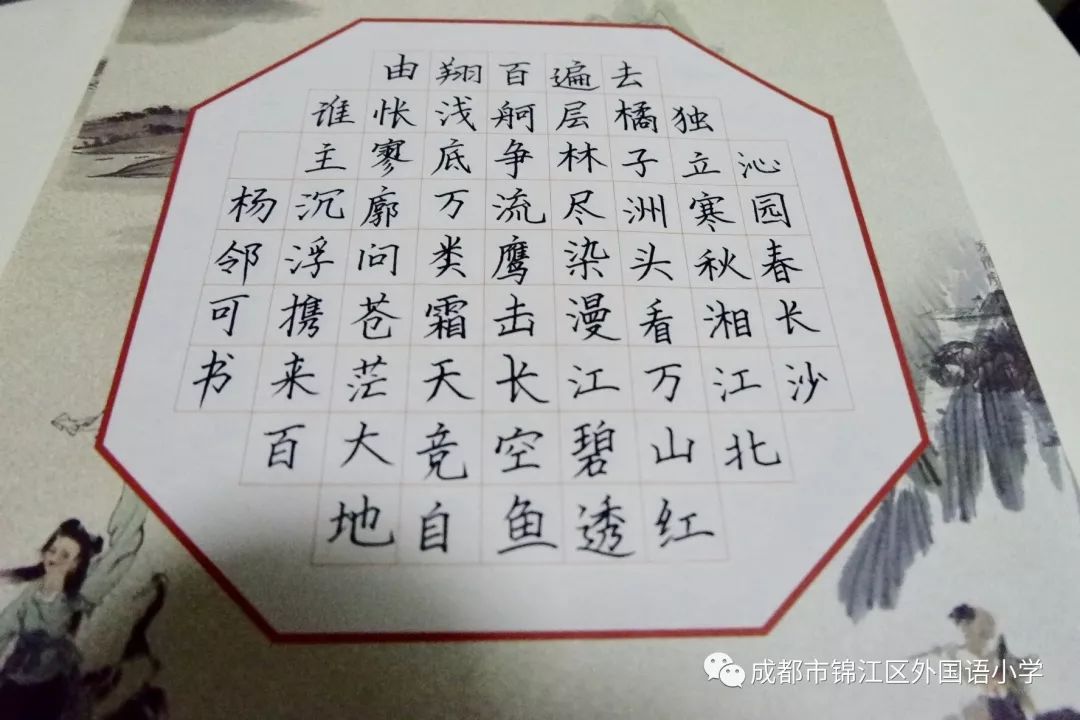 沁园春长沙
独立寒秋湘江北
去橘子洲头看万山红
遍层林尽染漫江碧透
百舸争流鹰击长空鱼
翔浅底万类霜天竞自
由怅寥廓问苍茫大地
谁主沉浮携来百
杨邻可书
成都市锦江区外国语小学